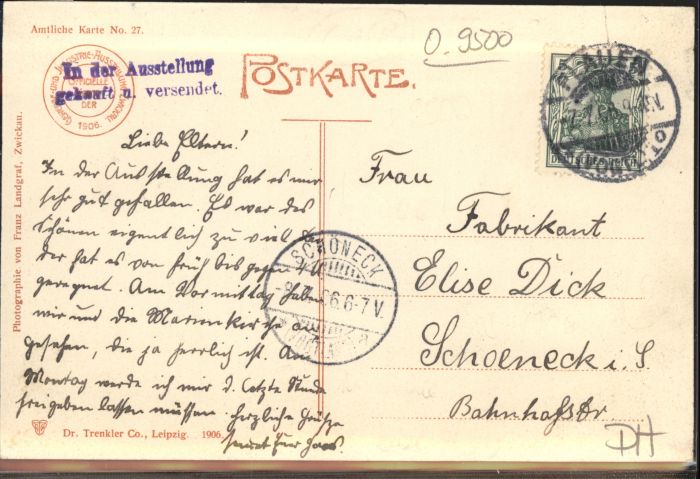 Amtliche Karte No. 27.
0.9500
In der Ausstellung
gekauft u. versendet.
1906.
POSTKARTE.
PLAUEN
DEUTSCHES REICH
Photographie von Franz Landgraf, Zwickau.
Liebe Eltern!
In der Ausstellung hat es mir
sehr gut gefallen. Es war des
Schönen eigentlich zu viel
der hat es von früh bis gegen
geregnet. Am Vormittag haben
wir uns die Marienkirche an
gesehen, die ja herrlich ist. Am
Montag werde ich mir d. letzte Stunde
freigeben lassen müssen. Herzliche Grüße
sendet Euer
SCHÖNECK
6-7V.
Frau
Fabrikant
Elise Dick
Schoeneck i. S
Bahnhofstr
DH
Dr. Trenkler Co., Leipzig. 1906.